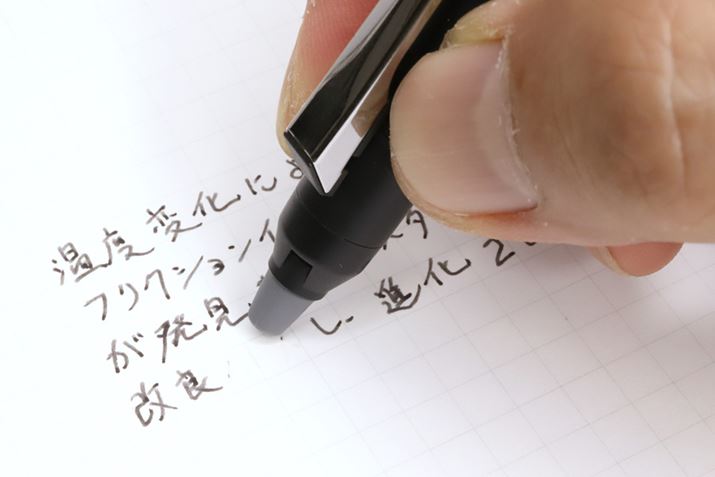 温度変化に
フリクションイ
が発見 し、進化
改良